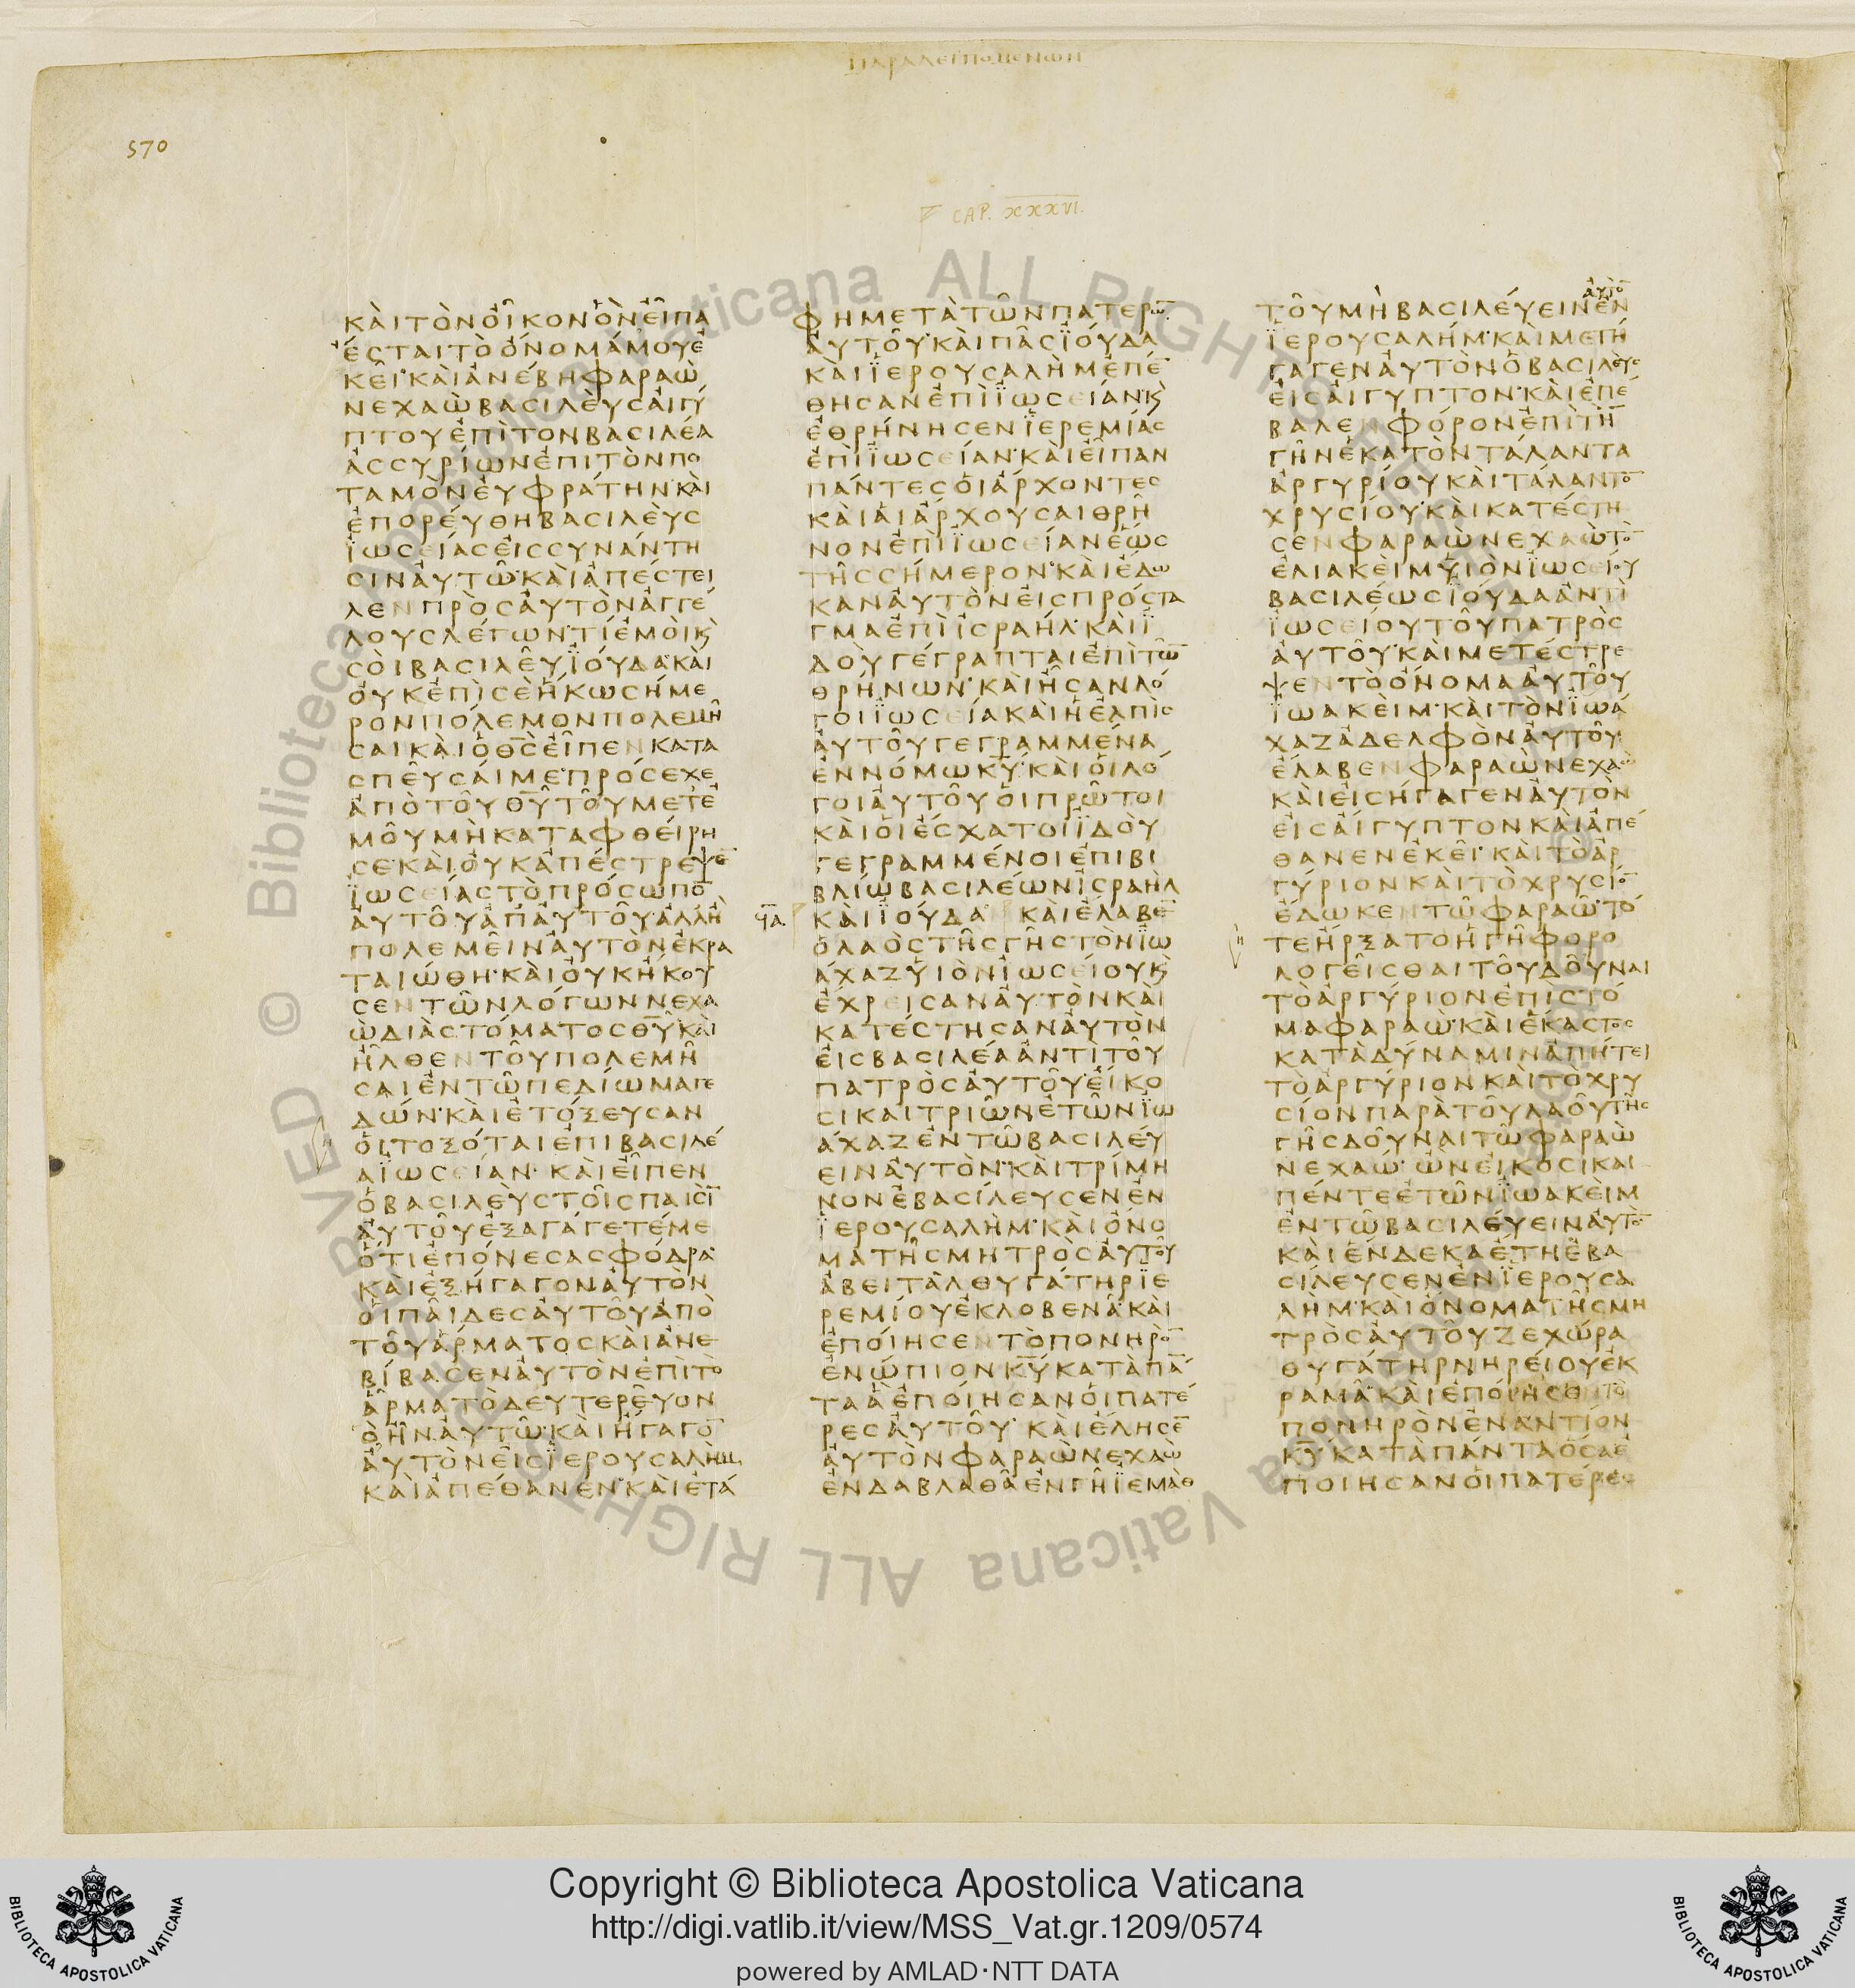 ΠΑΡΑΛΕΙΠΟΜΕΝΩΝ
570
CAP. XXXVI.
ΚΑΙΤΟΝΟΙΚΟΝΟΝΕΙΠΑ
ΕϹΤΑΙΤΟΟΝΟΜΑΜΟΥΕ
ΚΕΙ·ΚΑΙΑΝΕΒΗΦΑΡΑΩ
ΝΕΧΑΩΒΑϹΙΛΕΥϹΑΙΓΥ
ΠΤΟΥΕΠΙΤΟΝΒΑϹΙΛΕΑ
ΑϹϹΥΡΙΩΝΕΠΙΤΟΝΠΟ
ΤΑΜΟΝΕΥΦΡΑΤΗΝ·ΚΑΙ
ΕΠΟΡΕΥΘΗΒΑϹΙΛΕΥϹ
ΪΩϹΕΙΑϹΕΙϹϹΥΝΑΝΤΗ
ϹΙΝΑΥΤΩ·ΚΑΙΑΠΕϹΤΕΙ
ΛΕΝΠΡΟϹΑΥΤΟΝΑΓΓΕ
ΛΟΥϹΛΕΓΩΝ·ΤΙΕΜΟΙΚϗ
ϹΟΙΒΑϹΙΛΕΥΪΟΥΔΑ·ΚΑΙ
ΟΥΚΕΠΙϹΕΗΚΩϹΗΜΕ
ΡΟΝΠΟΛΕΜΟΝΠΟΛΕΜΗ
ϹΑΙΚΑΙΟΘ̅Ϲ̅ΕΙΠΕΝΚΑΤΑ
ϹΠΕΥϹΑΙΜΕ·ΠΡΟϹΕΧΕ
ΑΠΟΤΟΥΘ̅Υ̅ΤΟΥΜΕΤΕ
ΜΟΥΜΗΚΑΤΑΦΘΕΙΡΗ
ϹΕ·ΚΑΙΟΥΚΑΠΕϹΤΡΕΨΕ̅
ΪΩϹΕΙΑϹΤΟΠΡΟϹΩΠΟ̅
ΑΥΤΟΥΑΠΑΥΤΟΥ·ΑΛΛΗ
ΠΟΛΕΜΕΙΝΑΥΤΟΝΕΚΡΑ
ΤΑΙΩΘΗ·ΚΑΙΟΥΚΗΚΟΥ
ϹΕΝΤΩΝΛΟΓΩΝΝΕΧΑ
ΩΔΙΑϹΤΟΜΑΤΟϹΘ̅Υ̅·ΚΑΙ
ΗΛΘΕΝΤΟΥΠΟΛΕΜΗ
ϹΑΙΕΝΤΩΠΕΔΙΩΜΑΓΕ
ΔΩΝ·ΚΑΙΕΤΟΞΕΥϹΑΝ
ΟΙΤΟΞΟΤΑΙΕΠΙΒΑϹΙΛΕ
ΑΪΩϹΕΙΑΝ·ΚΑΙΕΙΠΕΝ
ΟΒΑϹΙΛΕΥϹΤΟΙϹΠΑΙϹΙ̅
ΑΥΤΟΥΕΞΑΓΑΓΕΤΕΜΕ
ΟΤΙΕΠΟΝΕϹΑϹΦΟΔΡΑ·
ΚΑΙΕΞΗΓΑΓΟΝΑΥΤΟΝ
ΟΙΠΑΙΔΕϹΑΥΤΟΥΑΠΟ
ΤΟΥΑΡΜΑΤΟϹΚΑΙΑΝΕ
ΒΙΒΑϹΕΝΑΥΤΟΝΕΠΙΤΟ
ΑΡΜΑΤΟΔΕΥΤΕΡΕΥΟΝ
ΟΗΝΑΥΤΩ·ΚΑΙΗΓΑΓΟ̅
ΑΥΤΟΝΕΙϹΪΕΡΟΥϹΑΛΗΜ
ΚΑΙΑΠΕΘΑΝΕΝ·ΚΑΙΕΤΑ
ΦΗΜΕΤΑΤΩΝΠΑΤΕΡΩ̅
ΑΥΤΟΥ·ΚΑΙΠΑϹΪΟΥΔΑ
ΚΑΙΪΕΡΟΥϹΑΛΗΜΕΠΕ̅
ΘΗϹΑΝΕΠΙΪΩϹΕΙΑΝ·ϗ
ΕΘΡΗΝΗϹΕΝΪΕΡΕΜΙΑϹ
ΕΠΙΪΩϹΕΙΑΝ·ΚΑΙΕΙΠΑΝ
ΠΑΝΤΕϹΟΙΑΡΧΟΝΤΕϹ
ΚΑΙΑΙΑΡΧΟΥϹΑΙΘΡΗ
ΝΟΝΕΠΙΪΩϹΕΙΑΝΕΩϹ
ΤΗϹϹΗΜΕΡΟΝ·ΚΑΙΕΔΩ
ΚΑΝΑΥΤΟΝΕΙϹΠΡΟϹΤΑ
ΓΜΑΕΠΙΙϹΡΑΗΛ·ΚΑΙΪ
ΔΟΥΓΕΓΡΑΠΤΑΙΕΠΙΤΩ̅
ΘΡΗΝΩΝ·ΚΑΙΗϹΑΝΛΟ
ΓΟΙΪΩϹΕΙΑΚΑΙΗΕΛΠΙϹ
ΑΥΤΟΥΓΕΓΡΑΜΜΕΝΑ
ΕΝΝΟΜΩΚ̅Υ̅·ΚΑΙΟΙΛΟ
ΓΟΙΑΥΤΟΥΟΙΠΡΩΤΟΙ
ΚΑΙΟΙΕϹΧΑΤΟΙΪΔΟΥ
ΓΕΓΡΑΜΜΕΝΟΙΕΠΙΒΙ
ΒΛΙΩΒΑϹΙΛΕΩΝΙϹΡΑΗΛ
ϞΑ. ΚΑΙΪΟΥΔΑ· ΚΑΙΕΛΑΒΕ̅
ΟΛΑΟϹΤΗϹΓΗϹΤΟΝΪΩ
ΑΧΑΖΥΙΟΝΪΩϹΕΙΟΥϗ
ΕΧΡΕΙϹΑΝΑΥΤΟΝΚΑΙ
ΚΑΤΕϹΤΗϹΑΝΑΥΤΟΝ
ΕΙϹΒΑϹΙΛΕΑΑΝΤΙΤΟΥ
ΠΑΤΡΟϹΑΥΤΟΥ·ΕΙΚΟ
ϹΙΚΑΙΤΡΙΩΝΕΤΩΝΪΩ
ΑΧΑΖΕΝΤΩΒΑϹΙΛΕΥ
ΕΙΝΑΥΤΟΝ·ΚΑΙΤΡΙΜΗ
ΝΟΝΕΒΑϹΙΛΕΥϹΕΝΕΝ
ΪΕΡΟΥϹΑΛΗΜ·ΚΑΙΟΝΟ
ΜΑΤΗϹΜΗΤΡΟϹΑΥΤΟΥ
ΑΒΕΙΤΑΛΘΥΓΑΤΗΡΪΕ
ΡΕΜΙΟΥΕΚΛΟΒΕΝΑ·ΚΑΙ
ΕΠΟΙΗϹΕΝΤΟΠΟΝΗΡΟ̅
ΕΝΩΠΙΟΝΚ̅Υ̅ΚΑΤΑΠΑ̅
ΤΑΑΕΠΟΙΗϹΑΝΟΙΠΑΤΕ
ΡΕϹΑΥΤΟΥ·ΚΑΙΕΔΗϹΕ̅
ΑΥΤΟΝΦΑΡΑΩΝΕΧΑΩ
ΕΝΔΑΒΛΑΘΑΕΝΓΗΪΕΜΑΘ
ΑΥΤΟ̅
ΤΟΥΜΗΒΑϹΙΛΕΥΕΙΝΕΝ
ΪΕΡΟΥϹΑΛΗΜ·ΚΑΙΜΕΤΗ
ΓΑΓΕΝΑΥΤΟΝΟΒΑϹΙΛΕΥϹ
ΕΙϹΑΙΓΥΠΤΟΝ·ΚΑΙΕΠΕ
ΒΑΛΕΝΦΟΡΟΝΕΠΙΤΗ̅
ΓΗΝΕΚΑΤΟΝΤΑΛΑΝΤΑ
ΑΡΓΥΡΙΟΥΚΑΙΤΑΛΑΝΤΟ̅
ΧΡΥϹΙΟΥ·ΚΑΙΚΑΤΕϹΤΗ
ϹΕΝΦΑΡΑΩΝΕΧΑΩΤΟ̅
ΕΛΙΑΚΕΙΜΥΙΟΝΪΩϹΕΙΟΥ
ΒΑϹΙΛΕΩϹΪΟΥΔΑΑΝΤΙ
ΪΩϹΕΙΟΥΤΟΥΠΑΤΡΟϹ
ΑΥΤΟΥ·ΚΑΙΜΕΤΕϹΤΡΕ
ΨΕΝΤΟΟΝΟΜΑΑΥΤΟΥ
ΪΩΑΚΕΙΜ·ΚΑΙΤΟΝΪΩΑ
ΧΑΖΑΔΕΛΦΟΝΑΥΤΟΥ
ΕΛΑΒΕΝΦΑΡΑΩΝΕΧΑΩ
ΚΑΙΕΙϹΗΓΑΓΕΝΑΥΤΟΝ
ΕΙϹΑΙΓΥΠΤΟΝΚΑΙΑΠΕ
ΘΑΝΕΝΕΚΕΙ·ΚΑΙΤΟΑΡ
ΓΥΡΙΟΝΚΑΙΤΟΧΡΥϹΙΟ̅
ΕΔΩΚΕΝΤΩΦΑΡΑΩ·ΤΟ
ΤΕΗΡΞΑΤΟΗΓΗΦΟΡΟ
ΛΟΓΕΙϹΘΑΙΤΟΥΔΟΥΝΑΙ
ΤΟΑΡΓΥΡΙΟΝΕΠΙϹΤΟ
ΜΑΦΑΡΑΩ·ΚΑΙΕΚΑϹΤΟϹ
ΚΑΤΑΔΥΝΑΜΙΝΑΠΗΤΕΙ
ΤΟΑΡΓΥΡΙΟΝΚΑΙΤΟΧΡΥ
ϹΙΟΝΠΑΡΑΤΟΥΛΑΟΥΤΗϹ
ΓΗϹΔΟΥΝΑΙΤΩΦΑΡΑΩ
ΝΕΧΑΩ·ΩΝΕΙΚΟϹΙΚΑΙ
ΠΕΝΤΕΕΤΩΝΪΩΑΚΕΙΜ
ΕΝΤΩΒΑϹΙΛΕΥΕΙΝΑΥΤΟ̅
ΚΑΙΕΝΔΕΚΑΕΤΗΕΒΑ
ϹΙΛΕΥϹΕΝΕΝΪΕΡΟΥϹΑ
ΛΗΜ·ΚΑΙΟΝΟΜΑΤΗϹΜΗ
ΤΡΟϹΑΥΤΟΥΖΕΧΩΡΑ
ΘΥΓΑΤΗΡΝΗΡΕΙΟΥΕΚ
ΡΑΜΑ·ΚΑΙΕΠΟΙΗϹΕΝΤΟ
ΠΟΝΗΡΟΝΕΝΑΝΤΙΟΝ
Κ̅Υ̅ΚΑΤΑΠΑΝΤΑΟϹΑΕ
ΠΟΙΗϹΑΝΟΙΠΑΤΕΡΕϹ
Biblioteca Apostolica Vaticana ALL RIGHTS RESERVED ©
Copyright © Biblioteca Apostolica Vaticana
http://digi.vatlib.it/view/MSS_Vat.gr.1209/0574
powered by AMLAD·NTT DATA
BIBLIOTECA APOSTOLICA VATICANA
BIBLIOTECA APOSTOLICA VATICANA